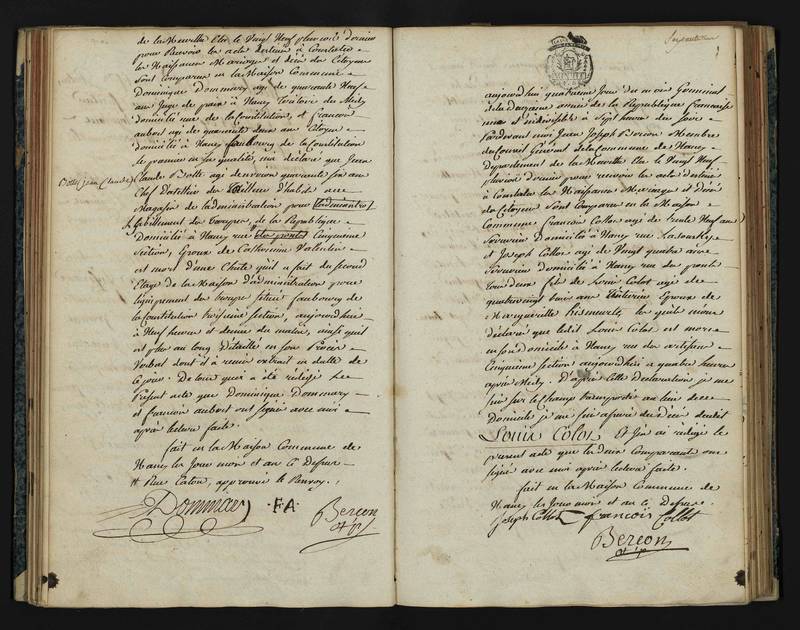 de la Meurthe Elu le Vingt Neuf pluviose dernier
pour Recevoir les actes destinés a Constater
les Naissances Mariages et décès des Citoyens
Sont comparus en la Maison Commune
Dominique Dommary agé de quarante Neuf
ans Juge de paix à Nancy territoire du Midy
domicilié rue de la Constitution, et francois
aubert agé de quarante deux ans Citoyen
domicilié à Nancy faubourg de la Constitution
le premier en sa qualité, ma déclaré que Jean
Claude Botte agé denviron quarante six ans
Chef Datellier des tailleurs d'habits au
Magasin de ladministration pour
habillement des troupes, de la République
Domicilié à Nancy rue Cinquieme
Section, Epoux de Catherine Valentin
est mort d'une Chute qu'il a fait du second
Etage de la Maison d'administration pour
léquipement des troupes située faubourg de
la Constitution huitieme Section, aujourdhuy
à Neuf heures et demie du matin, ainsi quil
est plus au long détaillé en son Procès
Verbal dont il a remis extrait en datte de
ce jour. De tout quoi a été rédigé Le
Présent acte que Dominique Dommary
et francois aubert ont signé avec moi
après lecture faite.
fait en la Maison Commune de
Nancy les Jour mois et an Ci Dessus
# Rue Caton, approuvé le Renvoy.
Botte Jean Claude
Dommary F.A. Berçon
off. p.
aujourdhui quatrieme Jour du mois Germinal
de la deuxieme année de la République francaise
une et indivisible à Sept heures du soir
Pardevant moi Jean Joseph Berçon Membre
du Conseil Général de la Commune de Nancy
Département de la Meurthe Elu le Vingt Neuf
pluviose dernier pour recevoir les actes destinés
à Constater les Naissances Mariages et Décès
des Citoyens Sont Comparus en la Maison
Commune francois Collot agé de trente Neuf ans
domicilié à Nancy rue
et Joseph Collot agé de Vingt quatre ans
domicilié à Nancy rue du
tous deux fils de Louis Colot agé de
quatre vingt trois ans Epoux de
Marguerite lesquels mont
déclaré que ledit Louis Colot est mort
en son domicile à Nancy rue des artisans
Cinquieme Section aujourdhui à quatre heures
après Midy. D'après Cette Déclaration je me
suis sur le Champ transporté au lieu de ce
Domicile je me suis assuré du décès dudit
Louis Colot Et j'en ai rédigé le
présent acte que les deux Comparants ont
signé avec moi après lecture faite.
fait en la Maison Commune de
Nancy les Jour mois et an Ci Dessus.
Joseph Collot francois Collot
Berçon
off. p.